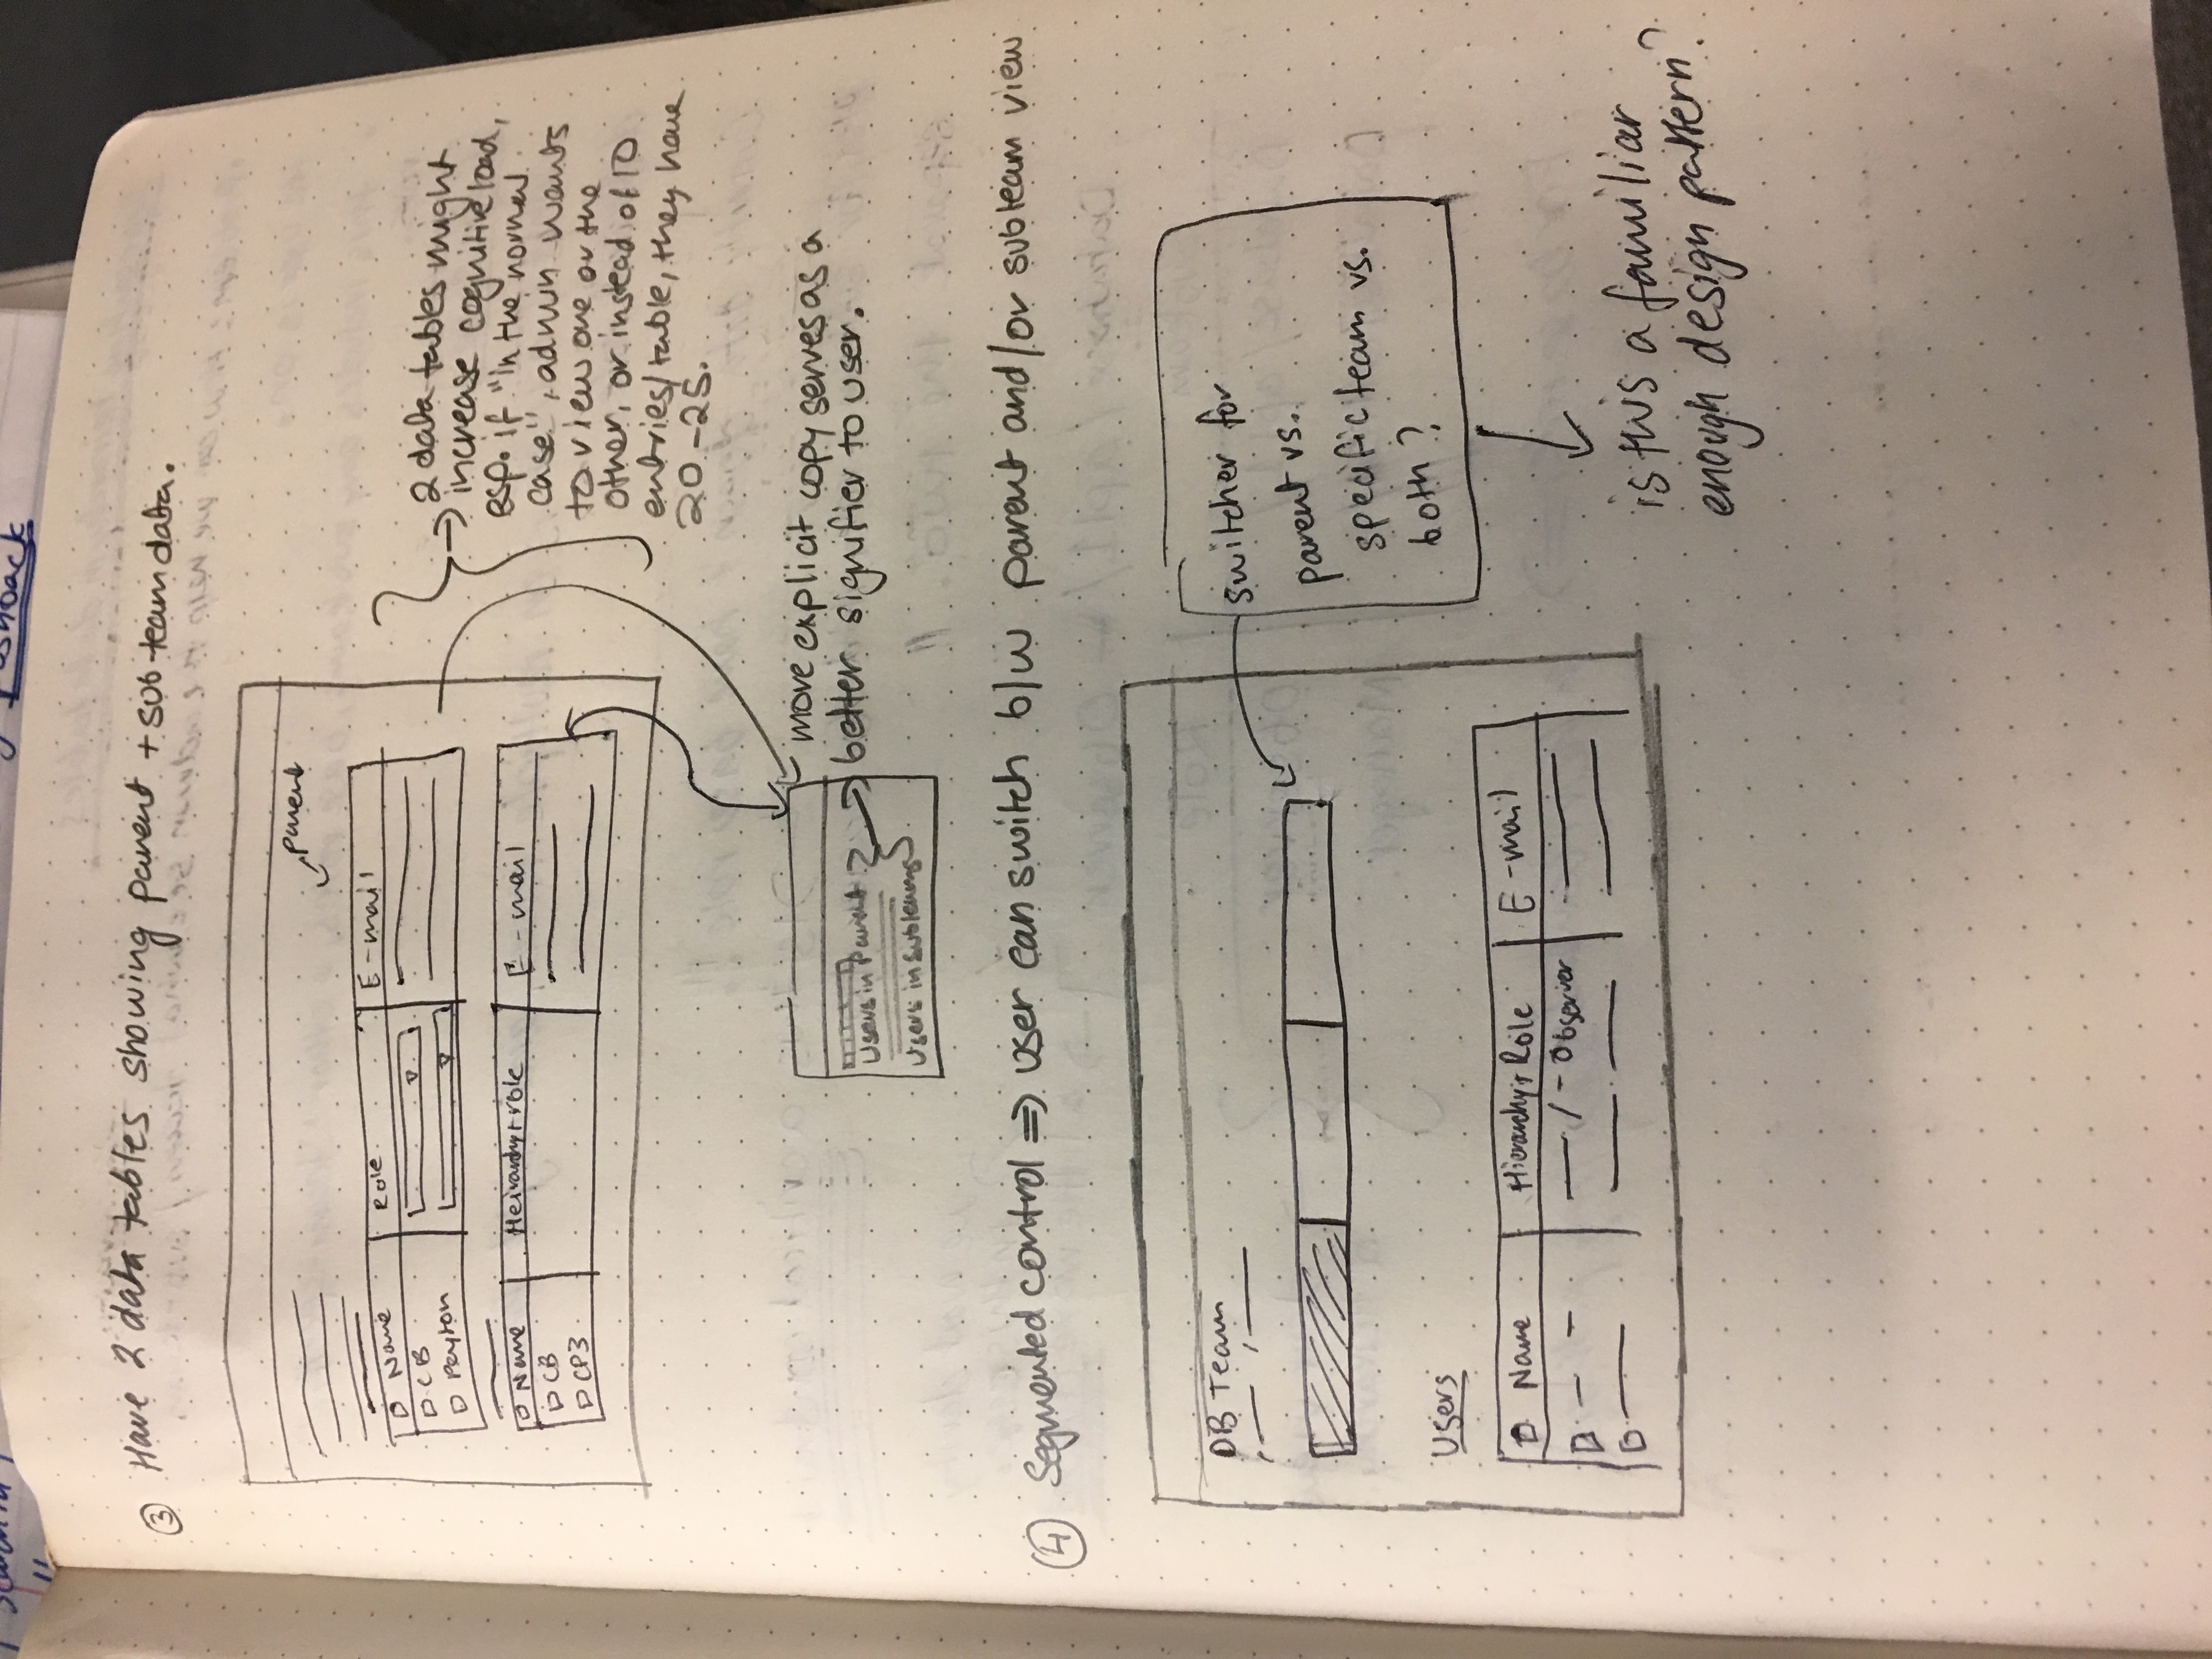 pushback
③ Have 2 data tables showing parent + sub-team data.
parent
Name Role E-mail
CB
Peyton
Name Heirarchy+role E-mail
CB
CP3
→ 2 data tables might
increase cognitive load,
esp. if "in the normal
case", admin wants
to view one or the
other, or instead of 10
entries/table, they have
20-25.
Users in Parent
Users in subteams
more explicit copy serves as a
better signifier to user.
④ Segmented control ⇒ user can switch b/w parent and/or subteam view
DB Team
switcher for
parent vs.
specific team vs.
both?
Users
Name Hierarchy+Role E-mail
/ - Observer
is this a familiar
enough design pattern?